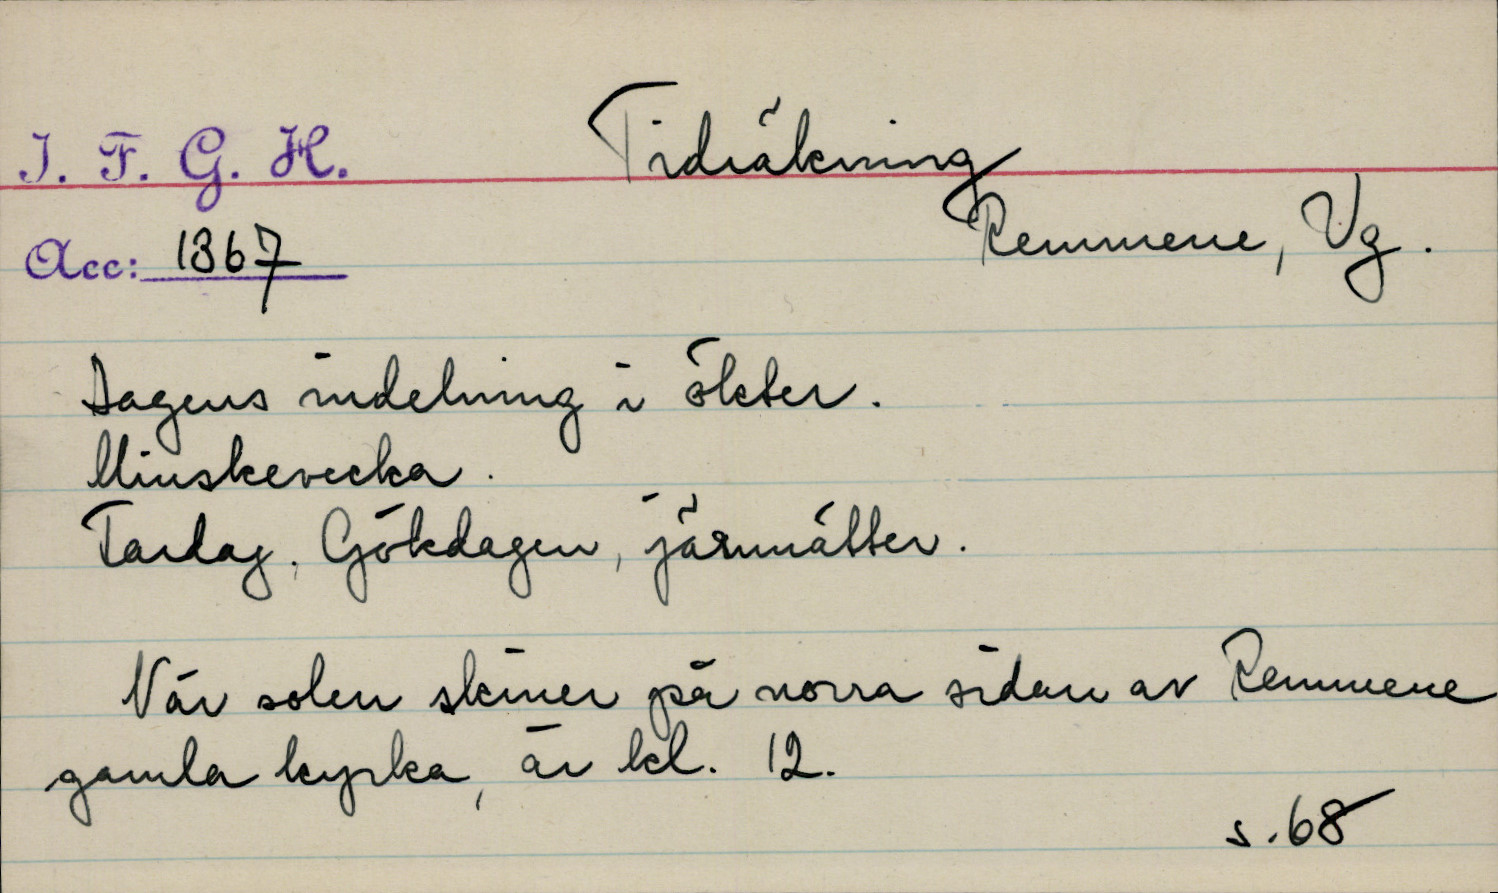 I. F. G. H.
Tidräkning
Remmene, Vg.
Acc: 1367
Dagens indelning i ökter.
Minskevecka.
Tardag, Gökdagen, järnnätter.
När solen skiner på norra sidan av Remmene
gamla kyrka, är kl. 12.
s. 68